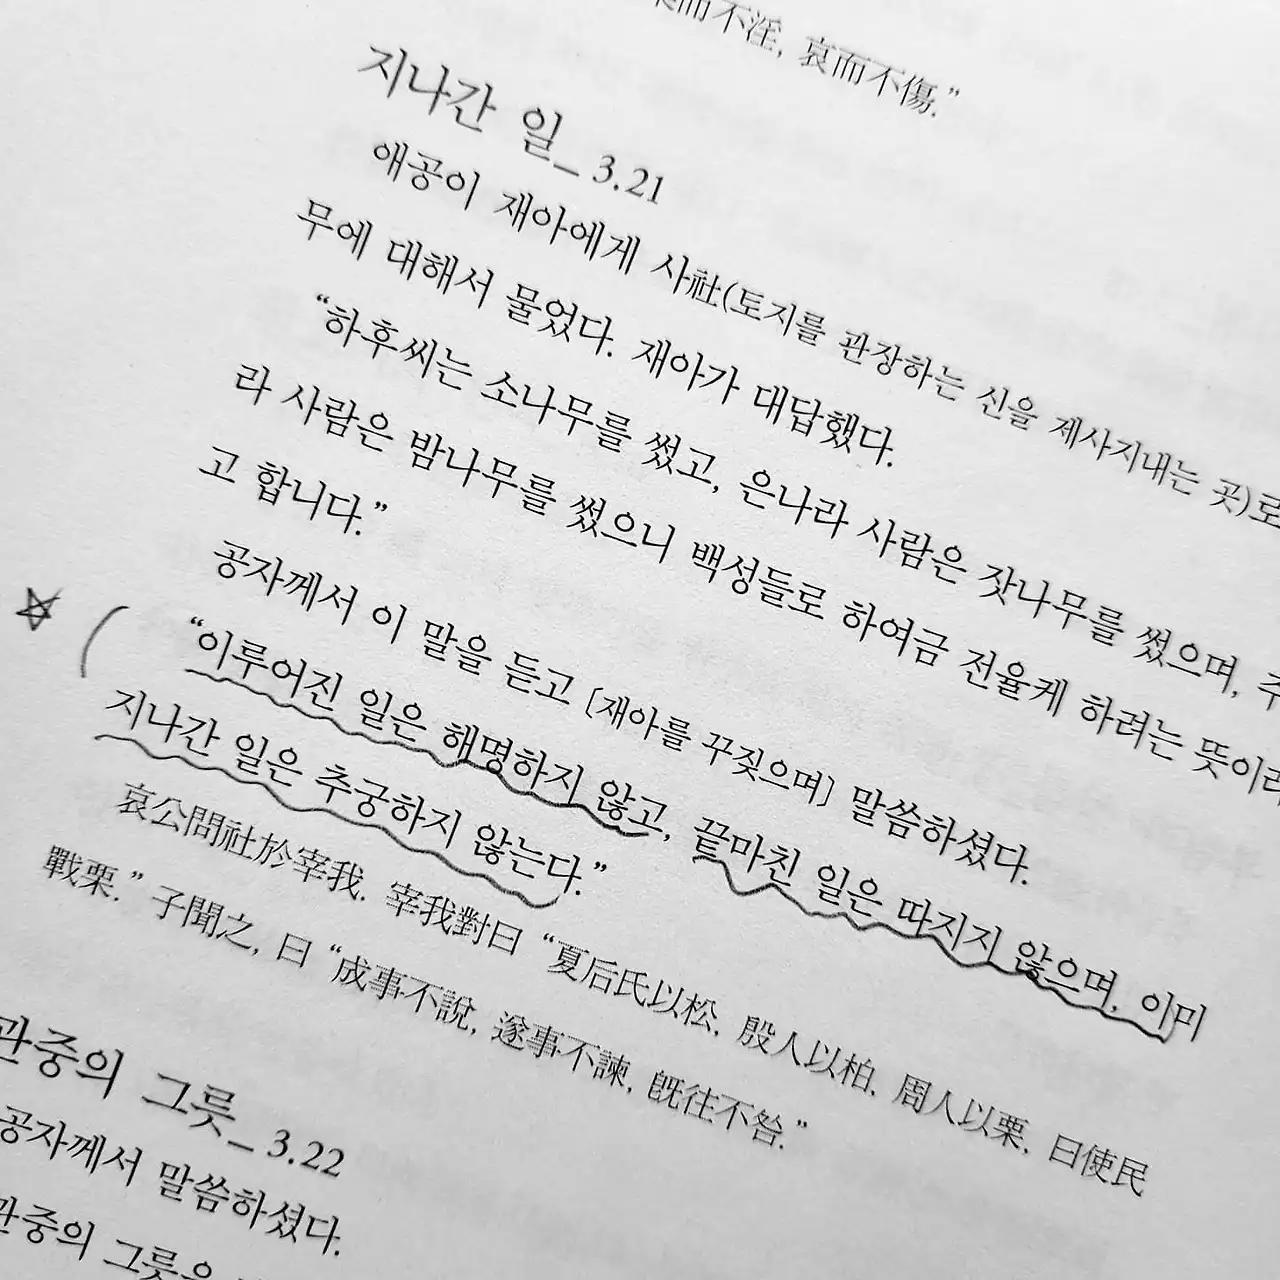 而不淫, 哀而不傷."
지나간 일_ 3.21
애공이 재아에게 사社(토지를 관장하는 신을 제사지내는 곳)로
무에 대해서 물었다. 재아가 대답했다.
"하후씨는 소나무를 썼고, 은나라 사람은 잣나무를 썼으며, 주
라 사람은 밤나무를 썼으니 백성들로 하여금 전율케 하려는 뜻이라
고 합니다."
공자께서 이 말을 듣고 [재아를 꾸짖으며] 말씀하셨다.
"이루어진 일은 해명하지 않고, 끝마친 일은 따지지 않으며, 이미
지나간 일은 추궁하지 않는다."
哀公問社於宰我. 宰我對曰 "夏后氏以松, 殷人以柏, 周人以栗, 曰使民
戰栗." 子聞之, 曰 "成事不說, 遂事不諫, 旣往不咎."
관중의 그릇_ 3.22
공자께서 말씀하셨다.
관중의 그릇은